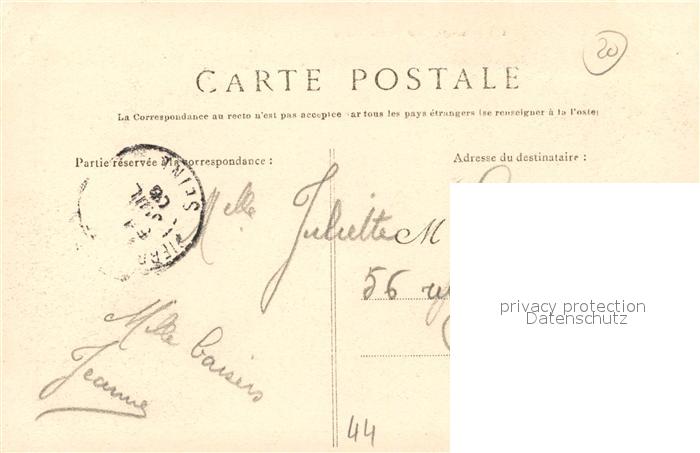 20
CARTE POSTALE
La Correspondance au recto n'est pas acceptée par tous les pays étrangers (se renseigner à la Poste)
Partie réservée à la correspondance :
Adresse du destinataire :
SEINE
Melle Juliette
M
56
privacy protection
Datenschutz
Mille baisers
Jeanne
44